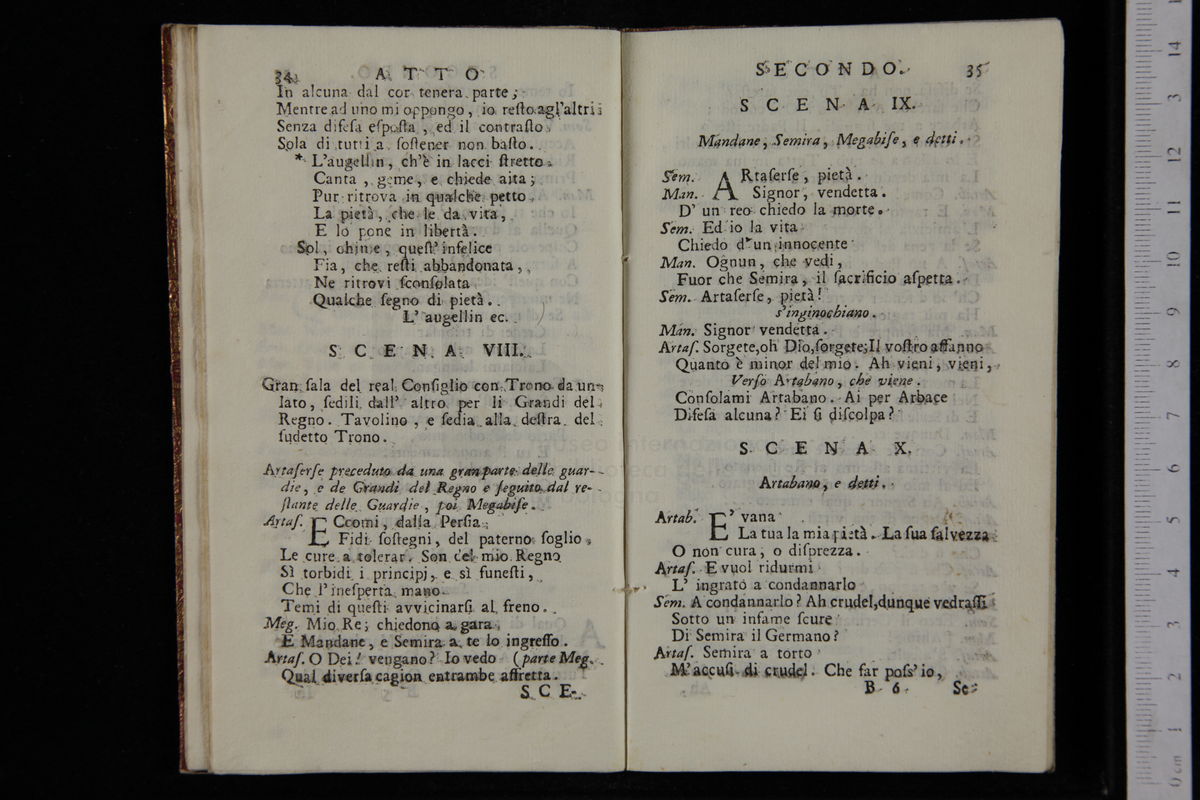 34 ATTO
In alcuna dal cor tenera parte;
Mentre ad uno mi oppongo, io resto agl'altri
Senza difesa esposta, ed il contrasto
Sola di tutti a sostener non basto.
* L'augellin, ch'è in lacci stretto
Canta, geme, e chiede aita;
Pur ritrova in qualche petto
La pietà, che le da vita,
E lo pone in libertà.
Sol, ohime, quest' infelice
Fia, che resti abbandonata,
Ne ritrovi sconsolata
Qualche segno di pietà.
L'augellin ec.
SCENA VIII.
Gran sala del real Consiglio con Trono da un
lato, sedili dall' altro per li Grandi del
Regno. Tavolino, e sedia alla destra del
sudetto Trono.
Artaserse preceduto da una gran parte delle guar-
die, e de Grandi del Regno e seguito dal re-
stante delle Guardie, poi Megabise.
Artas. ECcomi, dalla Persia
Fidi sostegni, del paterno soglio
Le cure a tolerar. Son del mio Regno
Sì torbidi i principj, e sì funesti,
Che l'inesperta mano
Temi di questi avvicinarsi al freno.
Meg. Mio Re; chiedono a gara
E Mandane, e Semira a te lo ingresso.
Artas. O Dei! vengano? Io vedo (parte Meg.
Qual diversa cagion entrambe affretta.
SCE-
SECONDO. 35
SCENA IX.
Mandane, Semira, Megabise, e detti.
Sem. ARtaserse, pietà.
Man. Signor, vendetta.
D' un reo chiedo la morte.
Sem. Ed io la vita
Chiedo d'un innocente
Man. Ognun, che vedi,
Fuor che Semira, il sacrificio aspetta.
Sem. Artaserse, pietà!
s'inginochiano.
Man. Signor vendetta.
Artas. Sorgete, oh Dio, sorgete; Il vostro affanno
Quanto è minor del mio. Ah vieni, vieni,
Verso Artabano, che viene.
Consolami Artabano. Ai per Arbace
Difesa alcuna? Ei si discolpa?
SCENA X.
Artabano, e detti.
Artab. E' vana
La tua la mia pietà. La sua salvezza
O non cura, o disprezza.
Artas. E vuol ridurmi
L' ingrato a condannarlo
Sem. A condannarlo? Ah crudel, dunque vedrassi
Sotto un infame scure
Di Semira il Germano?
Artas. Semira a torto
M'accusi di crudel. Che far poss' io,
B 6 Se